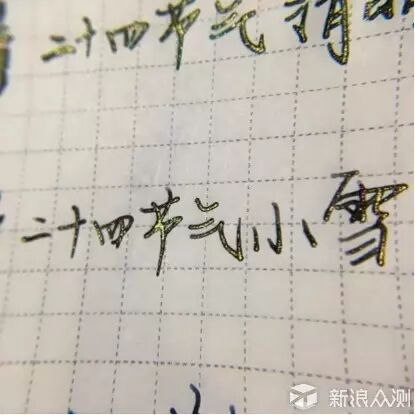 二十四节气清明
二十四节气小雪
新浪众测